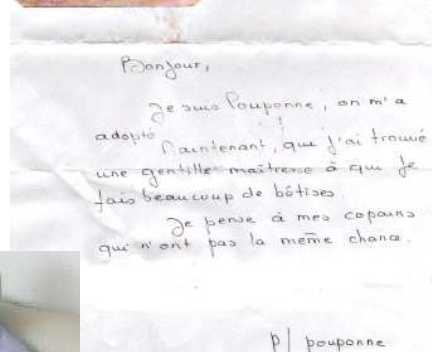 Bonjour,
Je suis Pouponne, on m'a
adopté
Maintenant, que j'ai trouvé
une gentille maîtresse à qui je
fais beaucoup de bêtises.
Je pense à mes copains
qui n'ont pas la même chance.
p/ pouponne